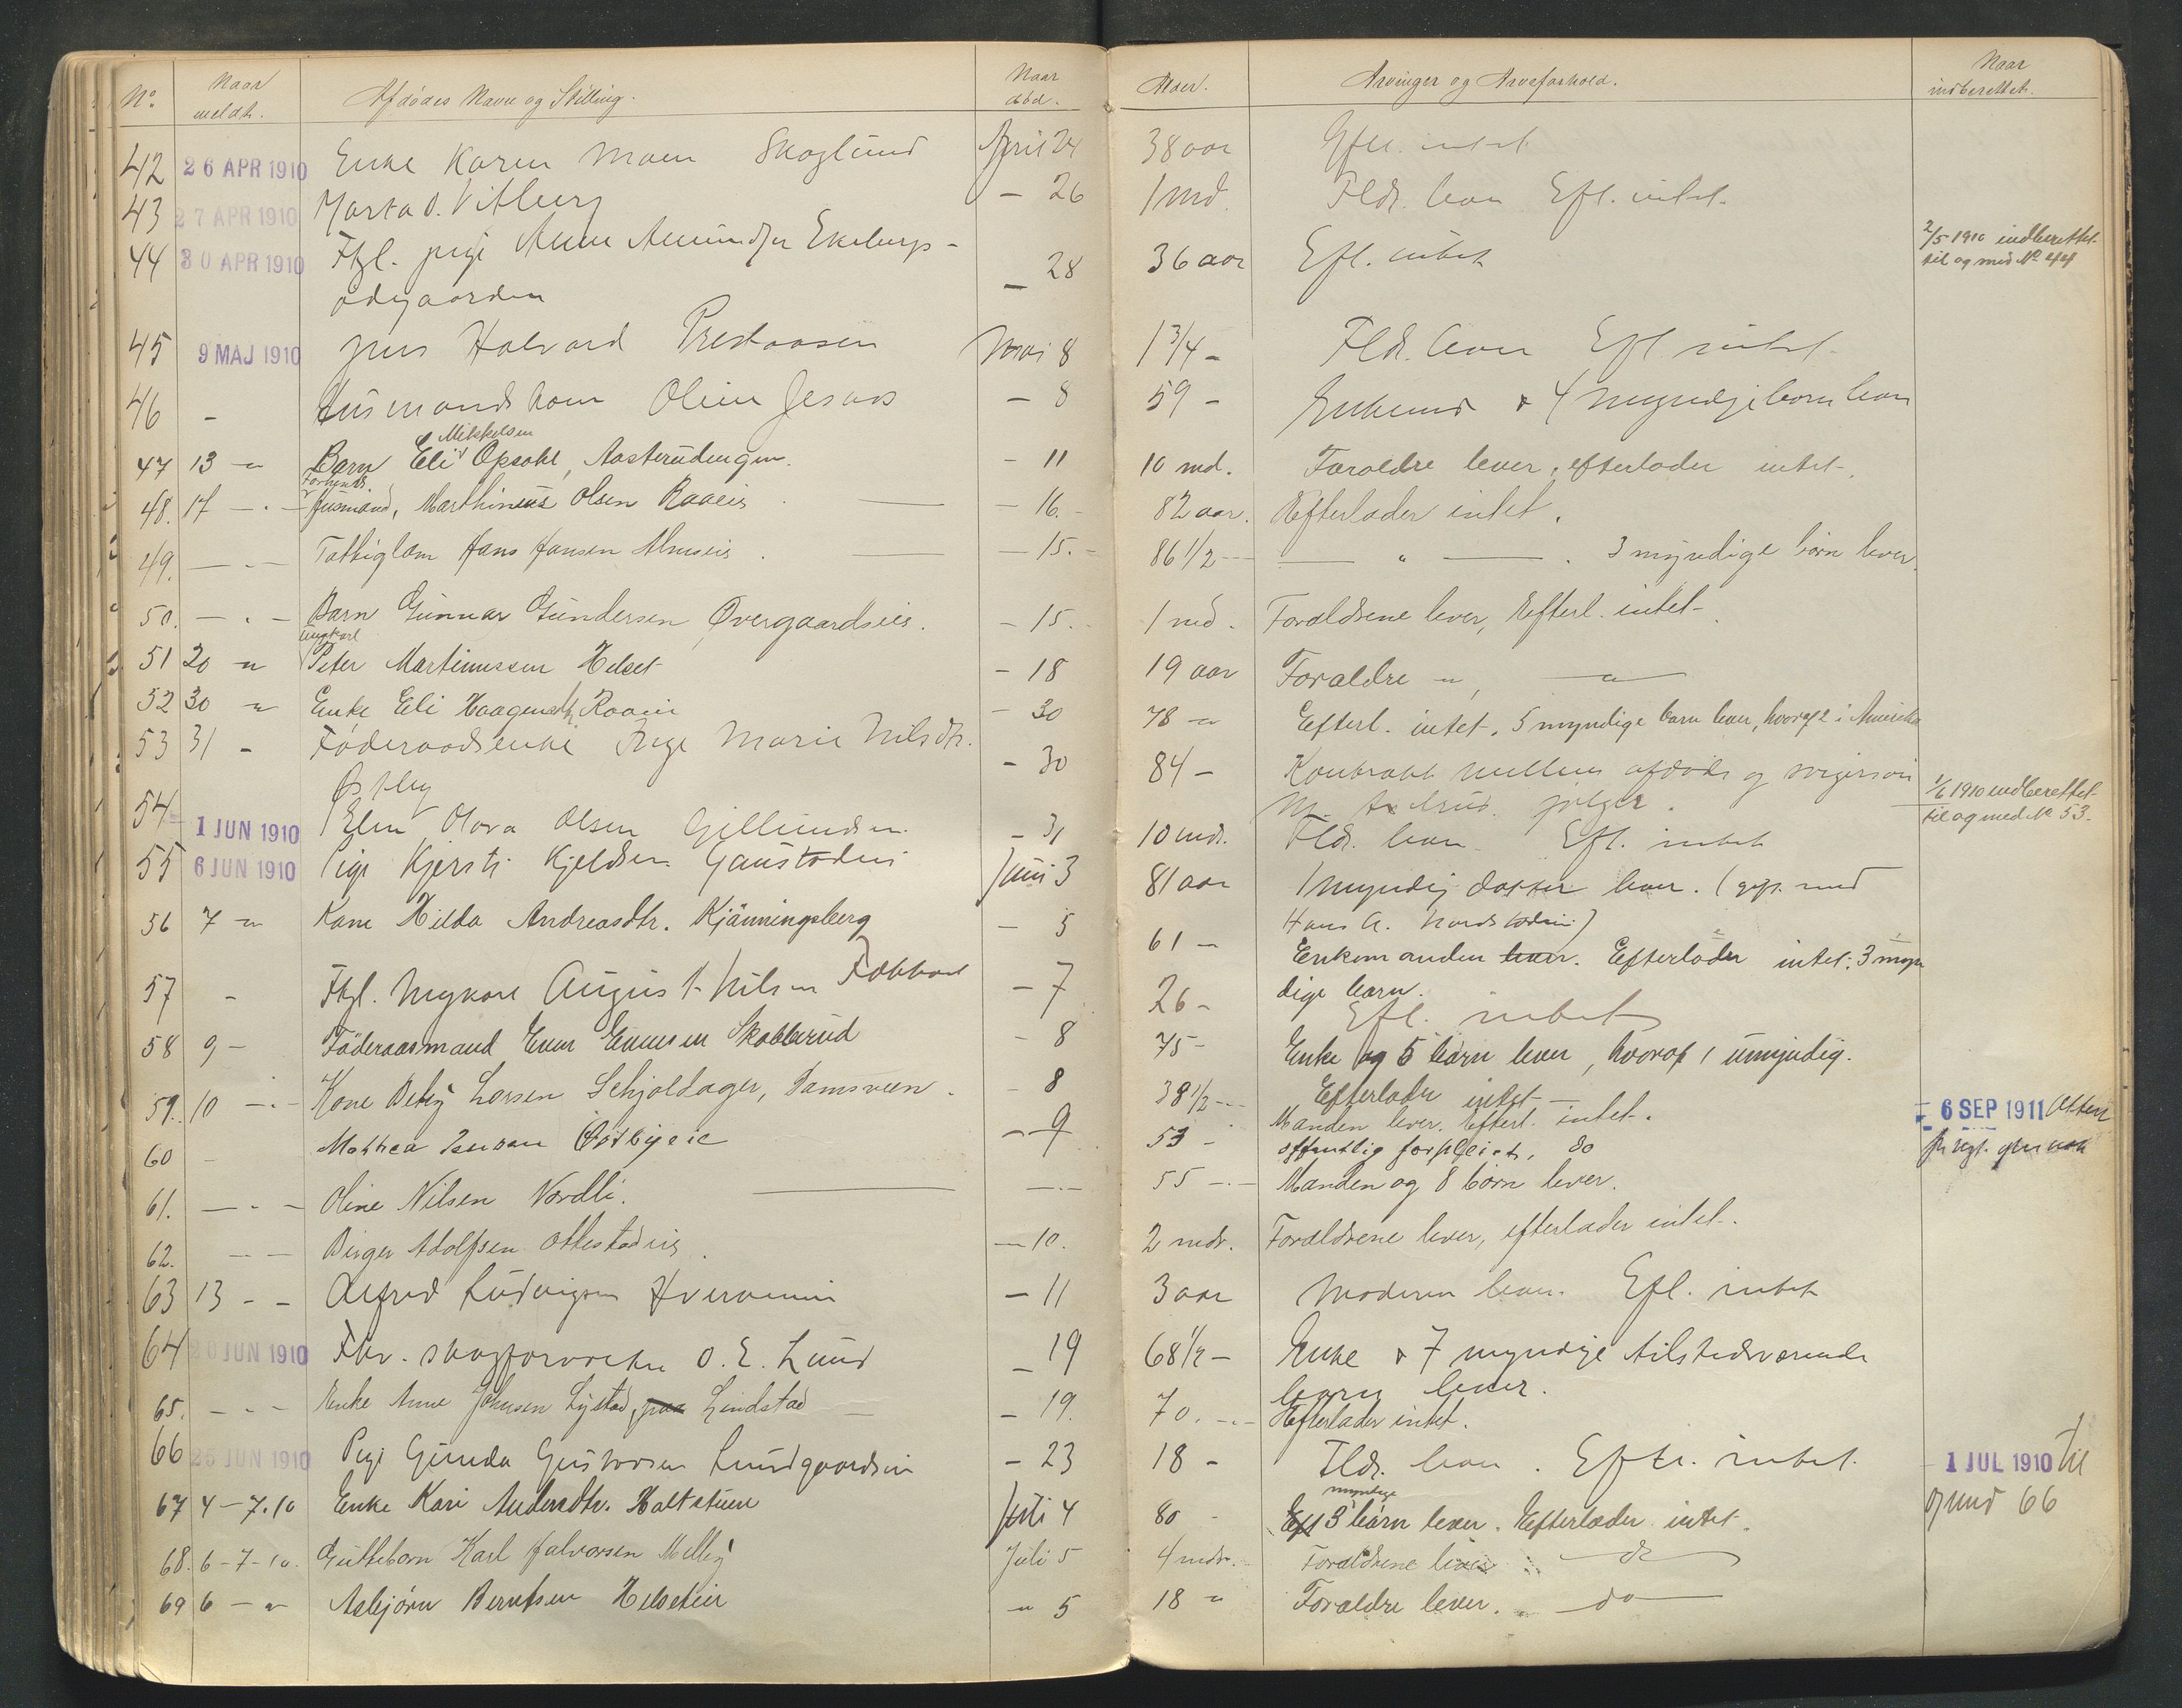 No. Naar meldt. Afdødes Navn og Stilling. Naar død. Alder. Arvinger og Arveforhold. Naar indberettet.
42 26 APR 1910 Enke Karen Moen Skoglund April 24 38 aar Efl. intet
43 27 APR 1910 Marta O. Vitberg - 26 1 md. Fldr. lever Efl. intet
44 30 APR 1910 Ftgl. pige Anne - 28 36 aar Efl. intet 2/5 1910 indberettet
ødegaarden til og med No 44
45 9 MAJ 1910 Halvard Prestaasen Mai 8 1 3/4 - Fldr. lever Efl. intet
46 - Husmandskone Oline - 8 59 - Enkemd & 4 myndige børn lever
Mikkelsen
47 13 - " Barn Eli Opsahl, Aasterudengen. - 11 10 md. Foræeldre lever, efterlader intet.
Forhenv.
48. 17 - " - Husmand, Marthinius Olsen Raaeie - 16. - 82 aar. Efterlader intet.
49. - " - Fattiglem Hans Hansen - 15. - 86 1/2 - - " - . 3 myndige børn lever.
50. - " - Barn Gunnar Gundersen Øvergaardseie. - 15. - 1 md. Forældrene lever, Efterl. intet.
ungkarl
51 20 - " Peter Martinussen Helset - 18 19 aar Forældre - " , - " -
52 30 - " Enke Eli Raaeie - 30 78 - " Efterl. intet. 5 myndige barn lever, hvoraf 2 i Amerika
53 31 - Føderaadsenke Inge Marie Nilsdtr. - 30 84 - Kontrakt mellem afdøde og svigersøn
Østby M. følger. 1/6 1910 indberettet
54 1 JUN 1910 Olava Olsen - 31 10 mdr. Fldr. lever Efl. intet til og med No 53.
55 6 JUN 1910 Pige Kjersti Kjeldsen Gaustadeie Juni 3 81 aar 1 myndig datter lever. (gift med
Hans A. )
56 7 - " Kone Hilda Andreasdtr. Kjänningsberg - 5 61 - Enkemanden lever. Efterlader intet. 3 myn
dige barn.
57 - Ftgl. Ungkarl August Nilsen - 7 26 - Efl. intet
58 9 - Föderaasmand Even Evensen Skabberud - 8 75 - Enke og 5 børn lever, hvoraf 1 umyndig.
Efterlader intet -
59. 10 - " - Kone Betzy Larsen Schjoldager, - 8 38 1/2 - Manden lever. Efterl. intet. 6 SEP 1911
60 - Mathea - 9 53 - offentlig forpleiet, do
61. - " - Oline Nilsen Nordli. - " - 55 - " - Manden og 8 børn lever.
62. - - Birger Adolfsen Ottestadeie - 10. 2 mdr. Forældrene lever, efterlader intet.
63 13 - - Alfred Ludvigsen - 11 3 aar Moderen lever. Efl. intet
64 20 JUN 1910 Fhv. skogforvalter O. E. Lund - 19 68 1/2 - Enke & 7 myndige tilstedeværende
børn lever.
65. - " - Enke Anne Johnsen Lystad, paa Lindstad - 19. 70. - " - Efterlader intet.
66 25 JUN 1910 Pige Gunda Gustavsen Lundgaardseie - 23 18 - Fldr. lever. Efterl. intet. 1 JUL 1910 til
myndige
67 4 - 7.10 Enke Kari Andersdtr. Haltstuen Juli 4 80 - Eft 3 børn lever. Efterlader intet. og med 66
68. 6 - 7 - 10. Guttebarn Karl Halvorsen Melby Juli 5 4 mdr. Forældrene lever do
69 6 - " Asbjørn Berntsen Helseteie - " 5 18 " Forældre lever. do